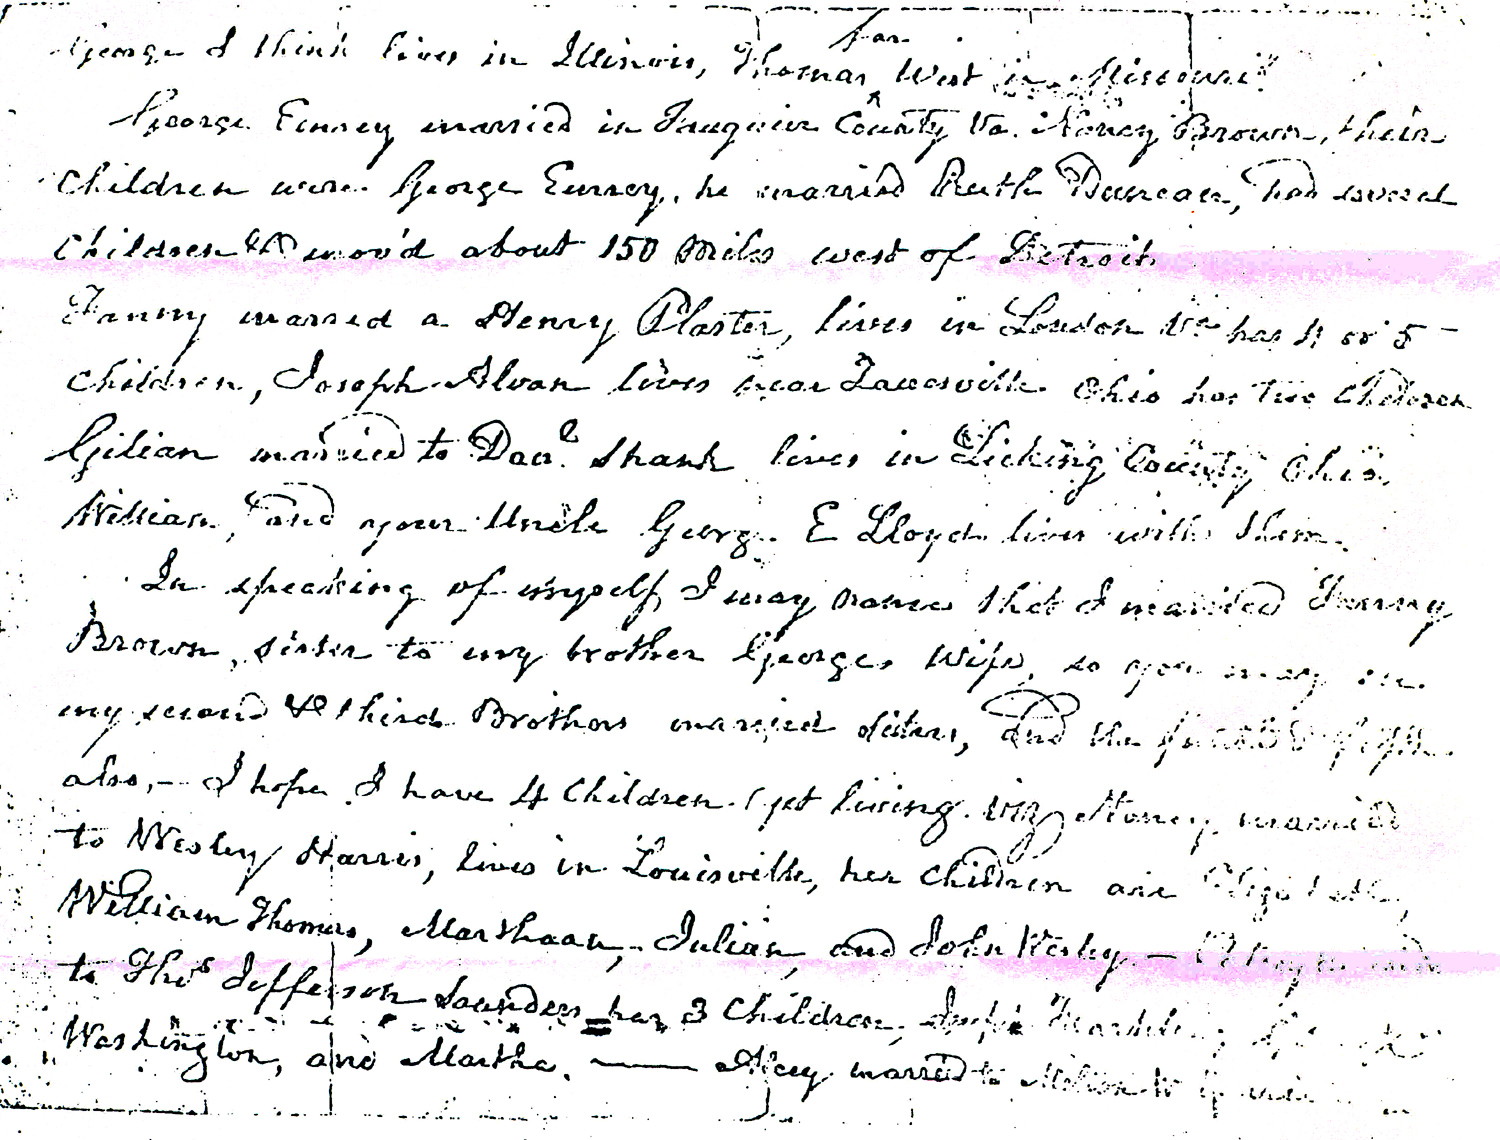 far
George I think lives in Illinois, Thomas ^ West in Missouri
George Emrey married in Fauquier County Va. Nancy Brown, their
Children were George Emrey, he married Ruth Duncan, had several
Children & mov'd about 150 Miles west of Detroit
Fanny married a Henry Plaster, lives in Loudon Va has 4 or 5
Children, Joseph Alvan lives near Zanesville Ohio has two Children
Gilian married to Shank lives in Licking County Ohio
William, and your Uncle George E Lloyd lives with them.
In speaking of myself, I may name that I married Fanny
Brown, sister to my brother Georges Wife, so you may
my second & third Brothers married sisters, and the
also, - I hope I have 4 Children yet living. viz Nancy married
to Wesley Harris, lives in Louisville, her Children are Elizabeth,
William Thomas, Marshaan, Julian, and John Wesley -
to Thos Jefferson Saunders has 3 Children,
Washington, and Martha. — married to Milton W